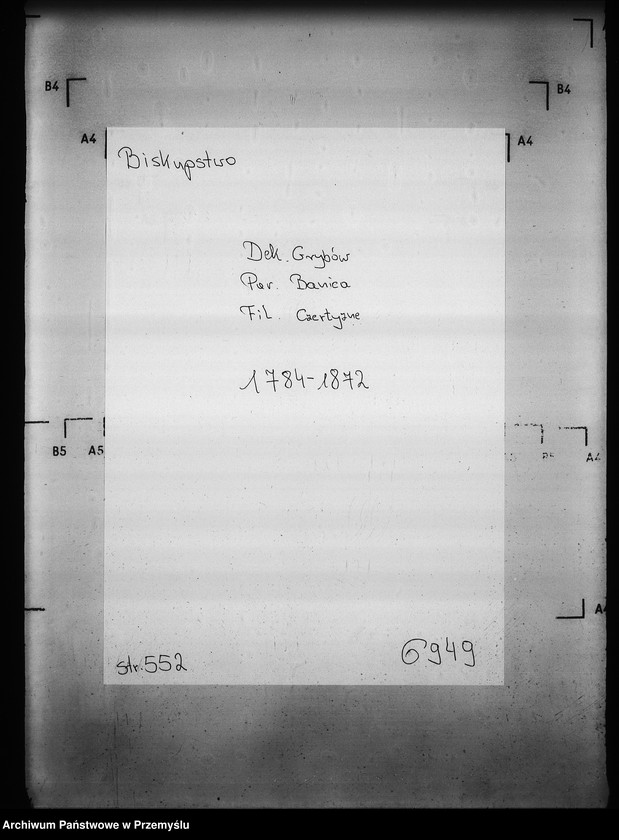 B4
B4
A4
A4
Biskupstwo
Dek. Grybów
Par. Banica
Fil. Czertyżne
1784-1872
B5
A5
A4
A4
str. 552
6949
Archiwum Państwowe w Przemyślu